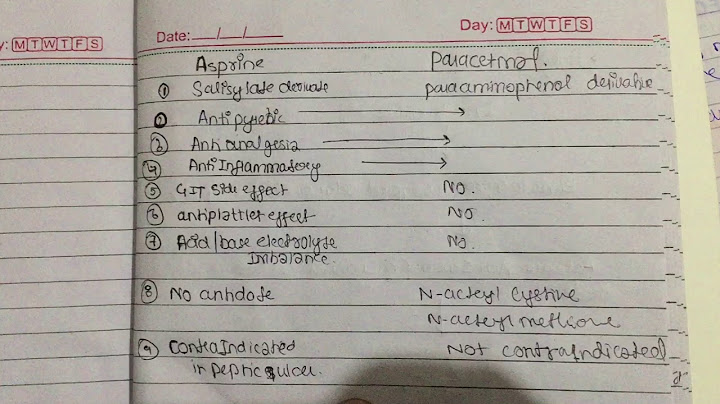 y: M T W T F S
Date: __/__/__ Day: M T W T F S
Asprine Paracetmol.
① Salisylate derivate paraaminophenol derivative
② Antipyretic →
3 Anti analgesia →
4 Anti Inflammatory →
5 GIT side effect No.
6 antiplattlet effect No.
7 Acid/base electrolyte No.
Imbalance.
8 No antidote N-acteyl Cystine
N-acteyl methione
9 ContraIndicated Not contraindicated
in peptic ulcer.